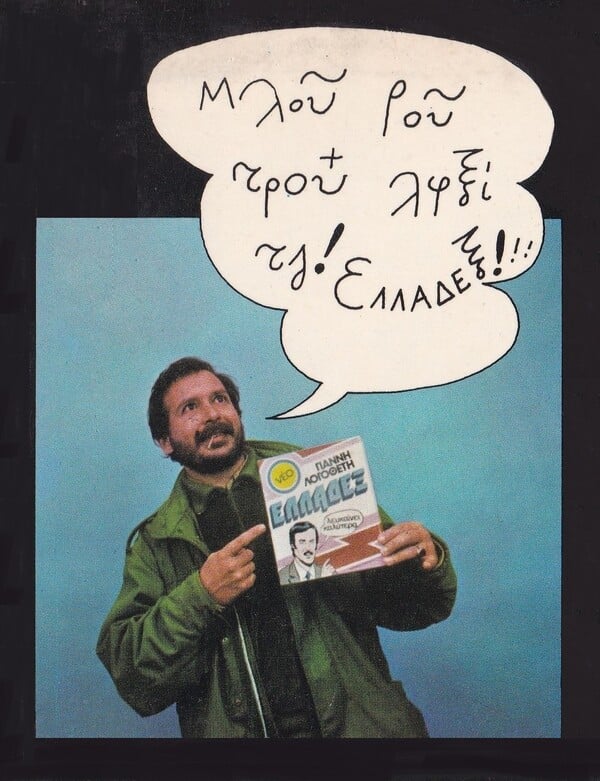 Μλοῦ ροῦ
τροῦ λφξί
! ΕΛΛΑΔΕξ!!!!
ΝΕΟ
ΓΙΑΝΝΗ
ΛΟΓΟΘΕΤΗ
ΕΛΛΑΔΕΞ
λευκαίνει
καλύτερα